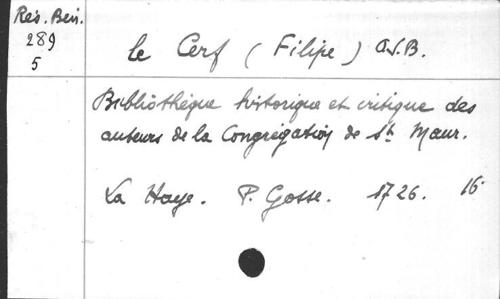 Rés. Ben.
289
5
le Cerf (Filipe) O.S.B.
Bibliothéque historique et critique des
auteurs de la Congrégation de St. Maur.
La Haye. P. Gosse. 1726. 16